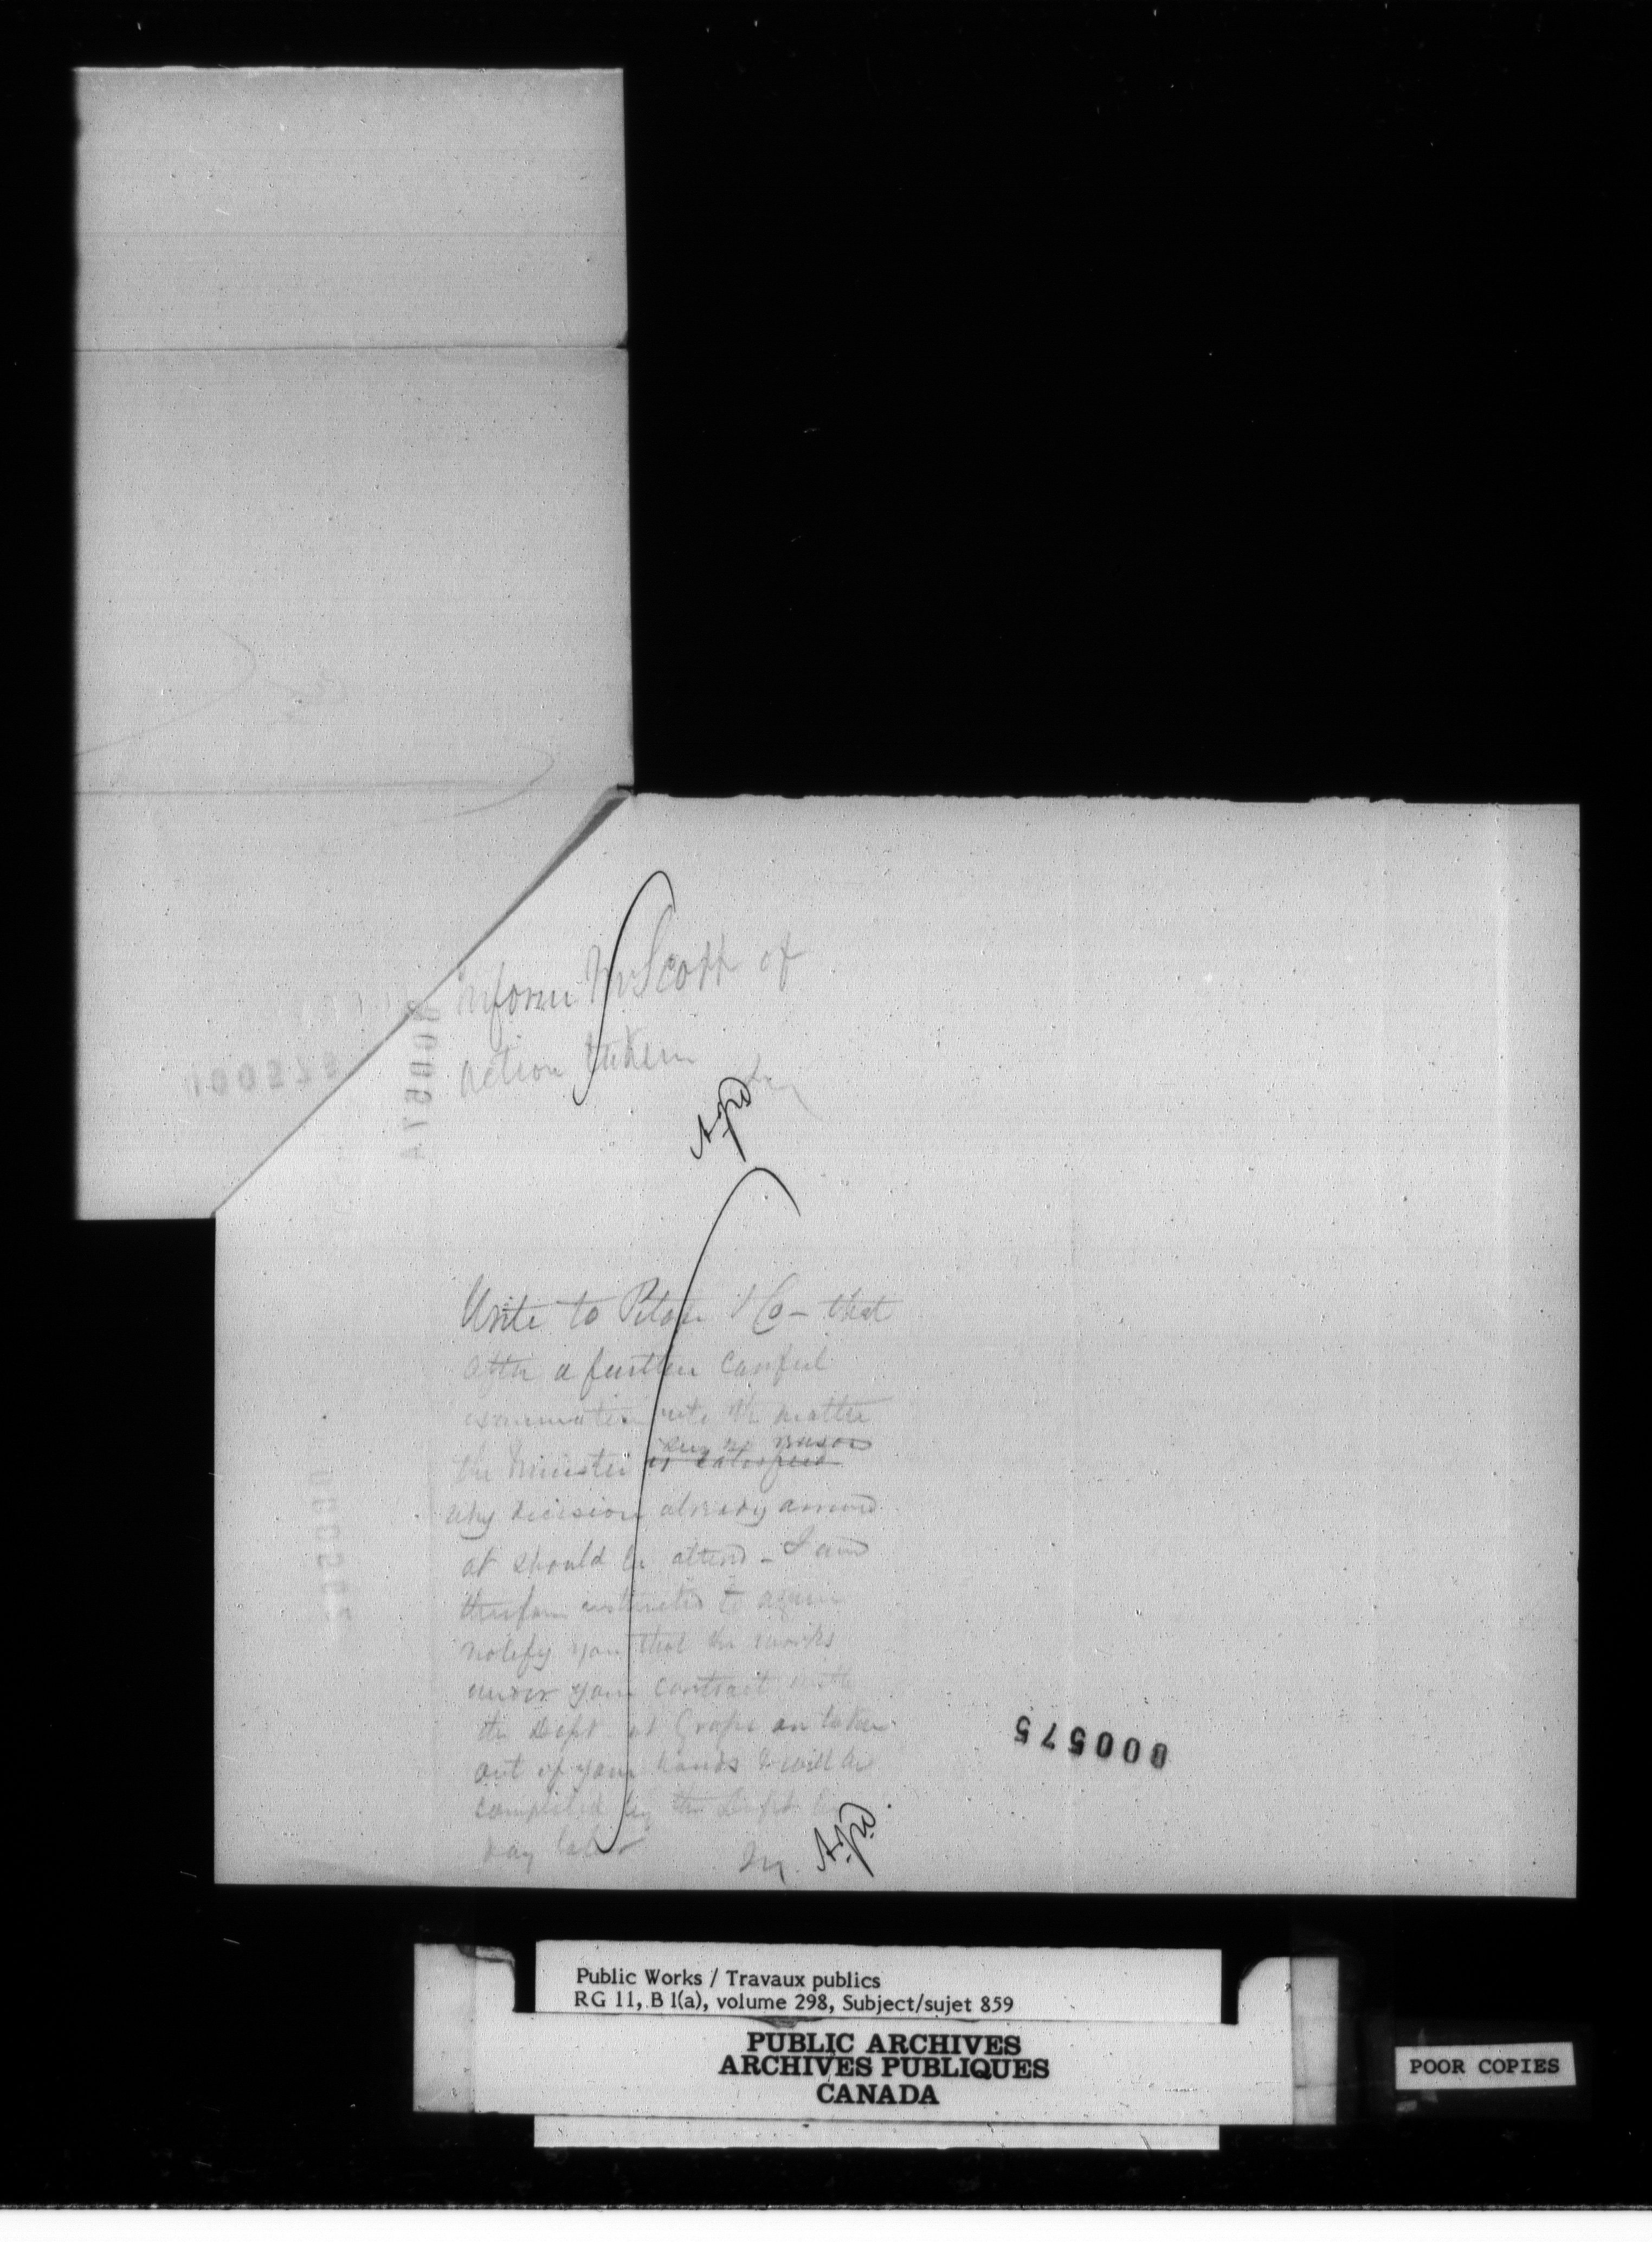 inform Mr Scott of
action taken
Write to & Co - that
after a further careful
examination into the matter
sees no reason
the Minister is satisfied
why decision already arrived
at should be altered - I am
therefore instructed to again
notify you that the works
under your contract with
the Dept at are taken
out of your hands & will be
completed by the Dept by
day labor
000575
Public Works / Travaux publics
RG 11, B 1(a), volume 298, Subject/sujet 859
PUBLIC ARCHIVES
ARCHIVES PUBLIQUES
CANADA
POOR COPIES